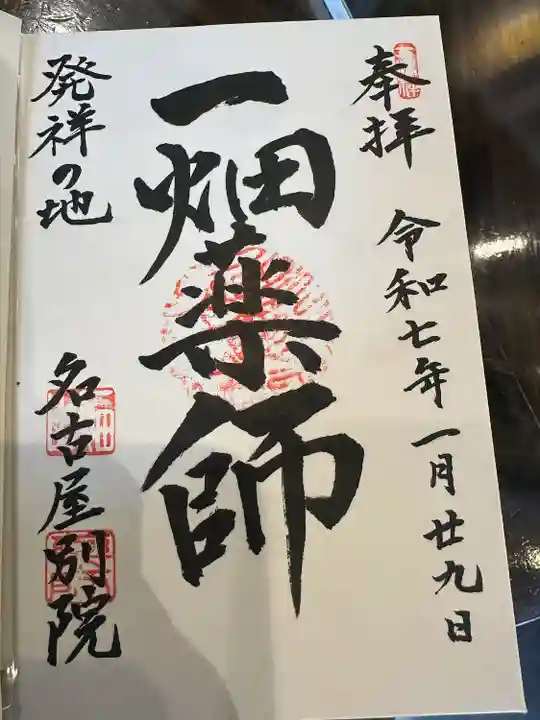 奉拝 令和七年一月廿九日
一畑薬師
発祥の地
名古屋別院